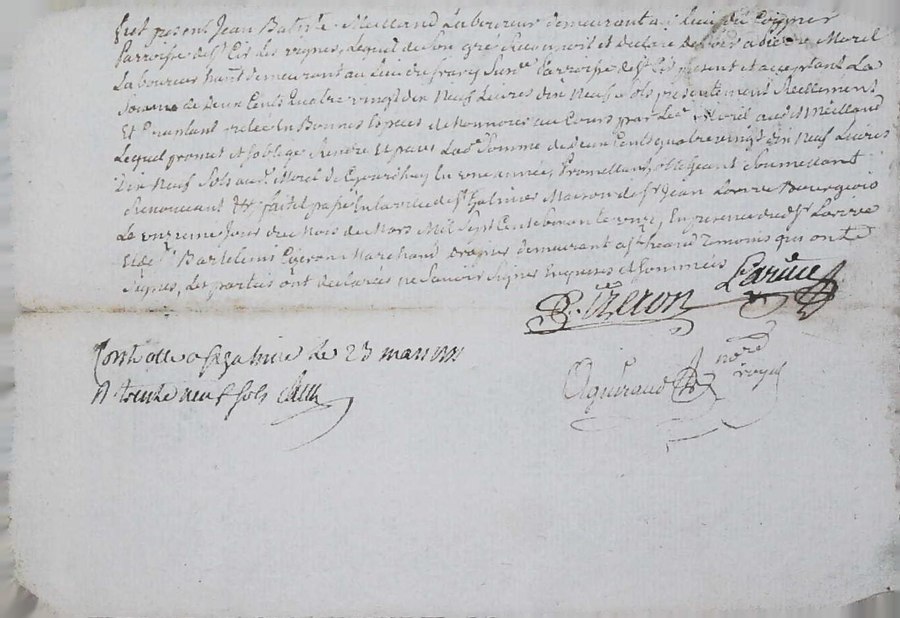 fut present Jean Batiste Meilland Laboureur demeurant au Lieu du Coignet
Parroisse de St Cir les vignes, Lequel de son gre Reconnoit et declare debvoir a pierre Morel
Laboureur habt demeurant au Lieu de Parroisse de St Cir present et acceptant La
somme de deux Cents Quatre vingt dix Neuf Livres dix Neuf sols presentement Reellement
Et Comptant En Bonnes Especes de Monnoies au Cours par Led Morel aud Meilland
Lequel promet et soblige Rendre Et paier Lad. Somme de deux Cents quatre vingt dix Neuf Livres
Dix Neuf Sols aud. Morel En une année, Promettant, obligeant, Soumettant
Renoncant &c fait et passé En La ville de St Galmier Maison de Sr Jean Larive Bourgeois
Le onzieme Jour du Mois de Mars Mil Sept Cent En presence dud Sr Larive
Et de Sr Bartelemi Marchand Drapier demeurant a St heand Temoins qui ont
signés, Les parties ont declarées ne Savoir Signer Enquises Et Sommées
Larive
norē
royal
Controlle a St galmier le 23 mars
R trente neuf sols